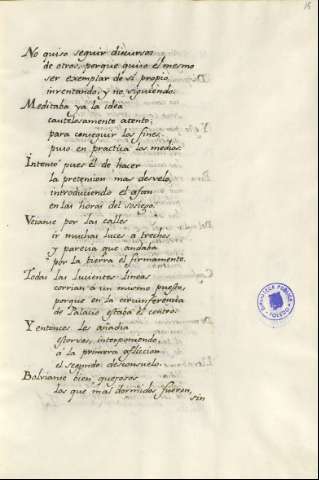 15
No quiso seguir discursos
de otros, porque quiso el mesmo
ser exemplar de sí propio
inventando, y no siguiendo.
Meditaba ya la idea
cautelosamente atento,
para conseguir los fines
puso en practica los medios.
Intentó pues él de hacer
la pretension mas desvelo,
introduciendo el afan
en las horas del sosiego.
Veianse por las calles
ir muchas luces a trechos,
y parecia que andaba
por la tierra el firmamento.
Todas las lucientes lineas
corrian á un mismo puesto,
porque en la circunferencia
de Palacio estaba el centro.
Y entonces les añadia
estorvos, interponiendo,
á la primera afliccion
el segundo desconsuelo.
Bolvianse bien quejosos
los que mal dormidos fueron,
sin
BIBLIOTECA PUBLICA
TOLEDO